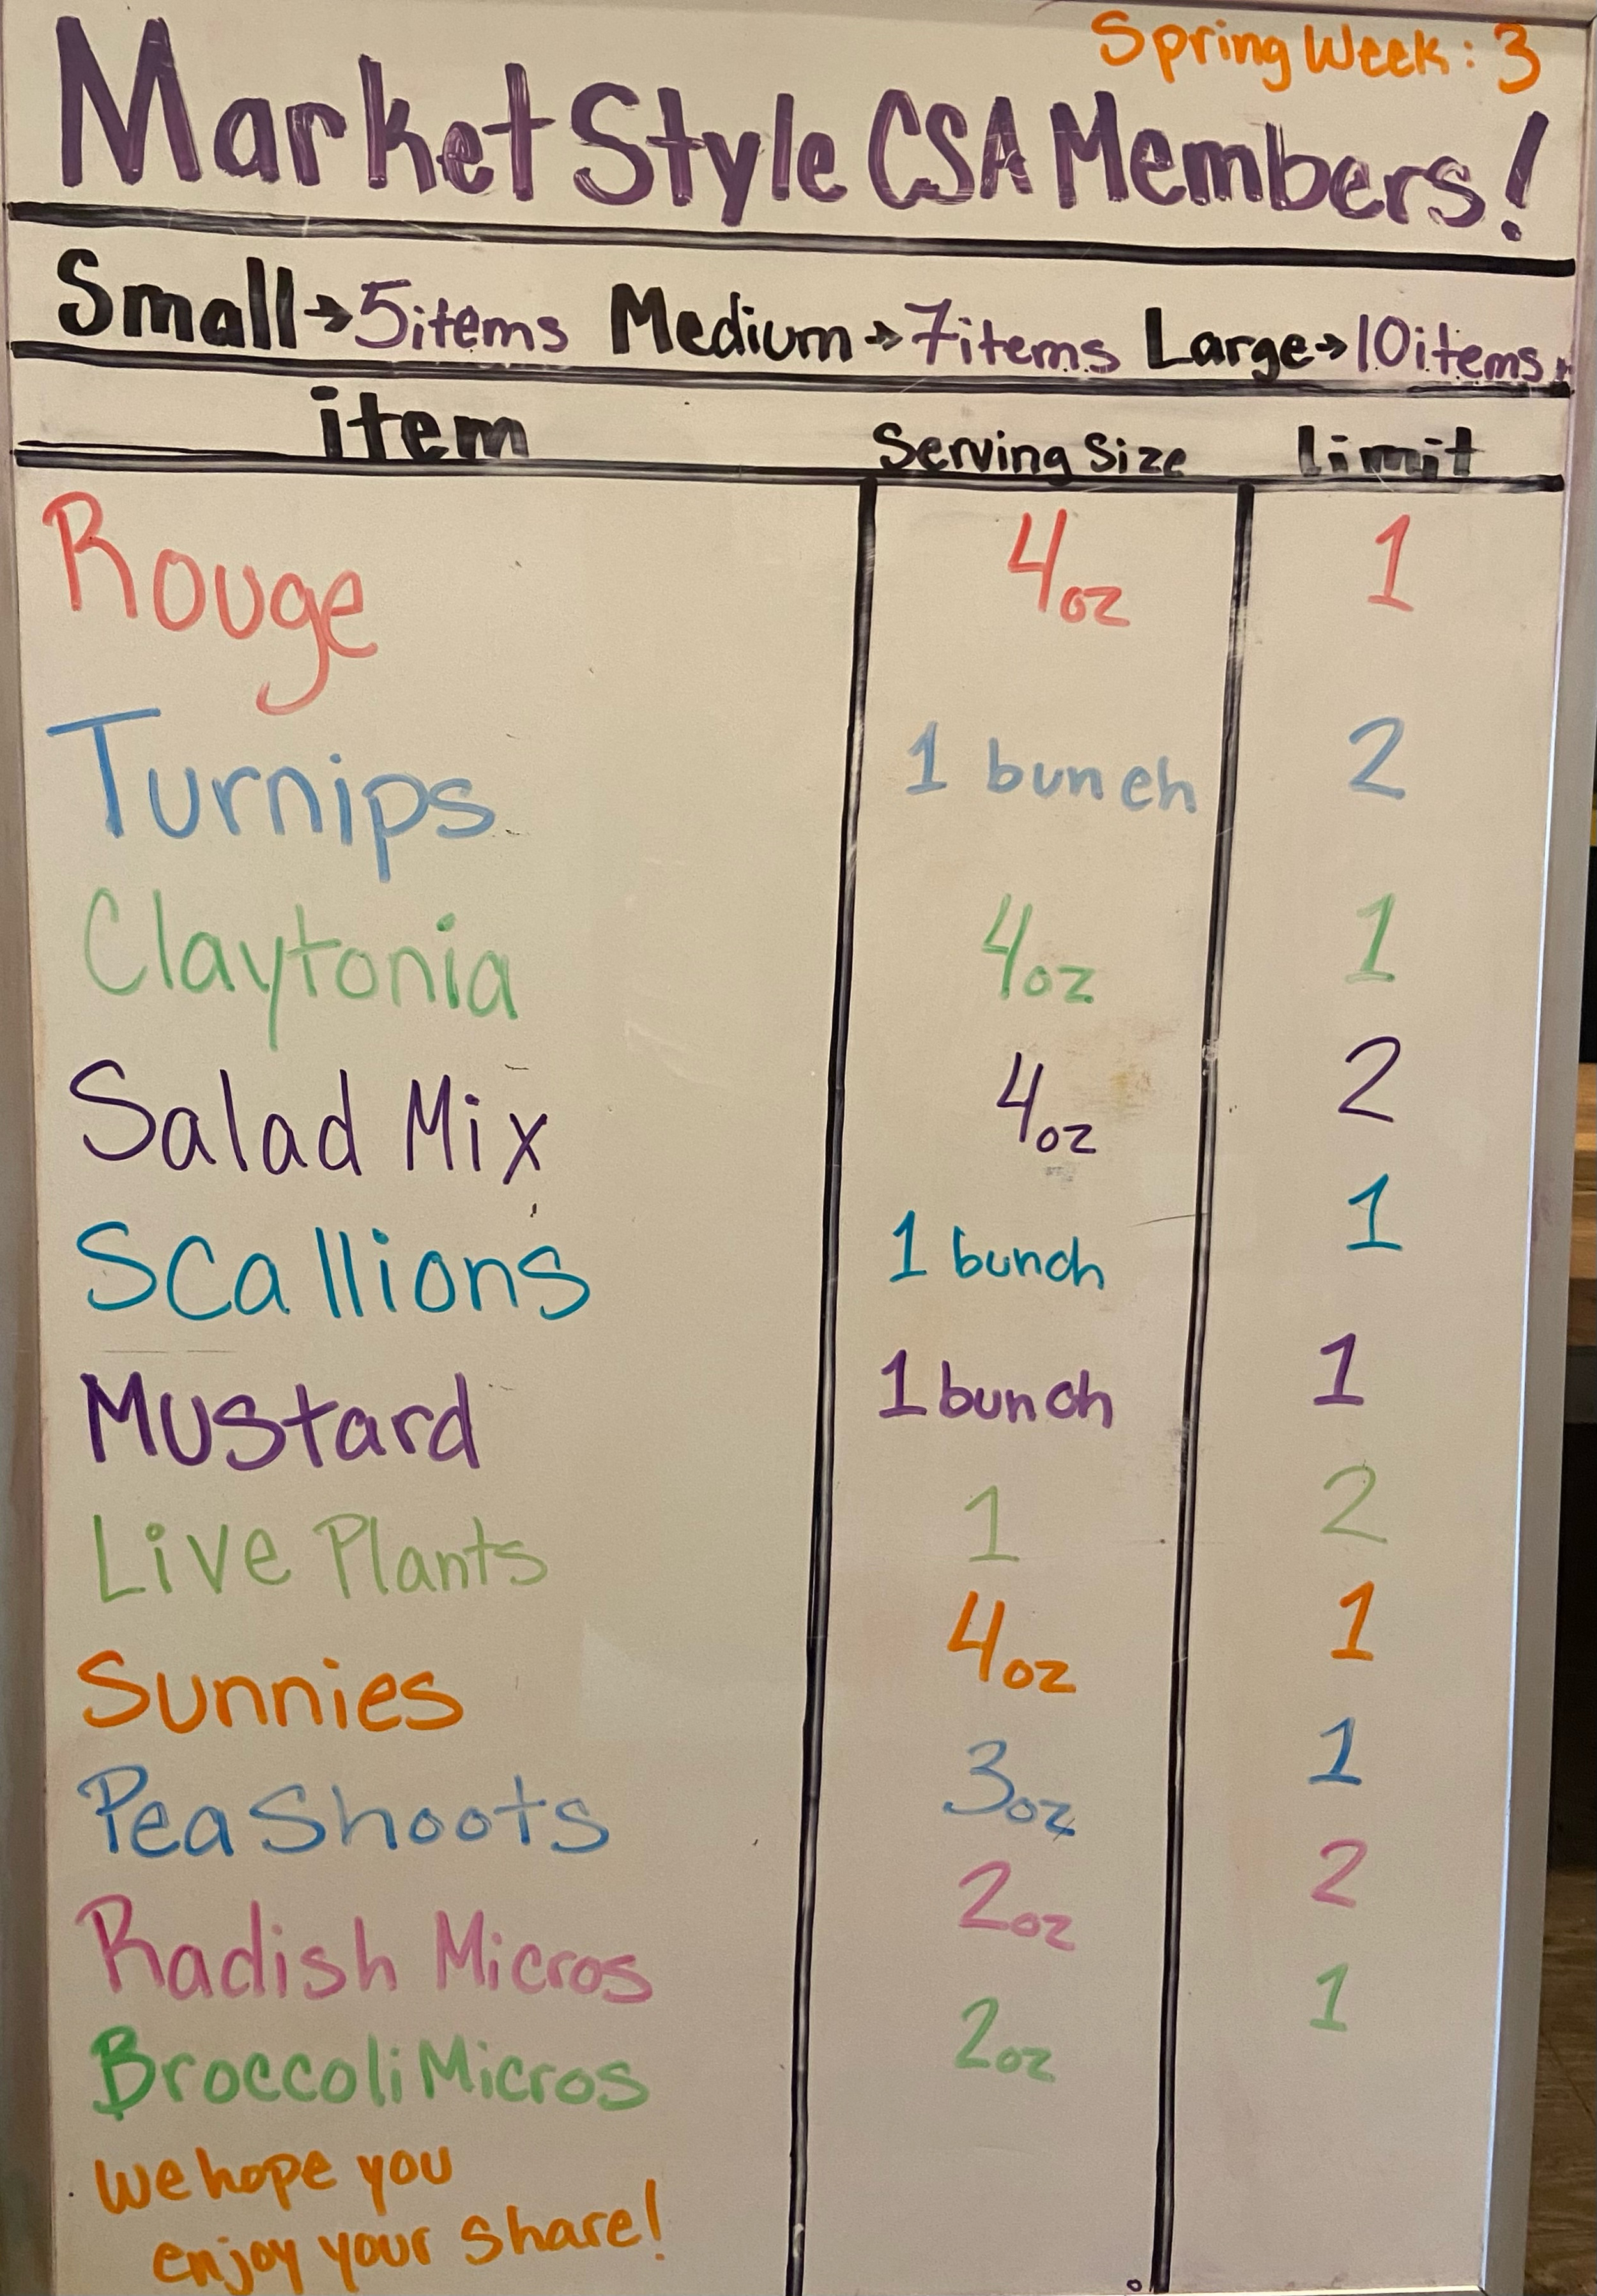 Spring Week: 3
Market Style CSA Members!
Small→5items Medium→7items Large→10items
item Serving Size limit
Rouge 4oz 1
Turnips 1 bunch 2
Claytonia 4oz 1
Salad Mix 4oz 2
Scallions 1 bunch 1
Mustard 1 bunch 1
Live Plants 1 2
Sunnies 4oz 1
Pea Shoots 3oz 1
Radish Micros 2oz 2
Broccoli Micros 2oz 1
We hope you
enjoy your share!